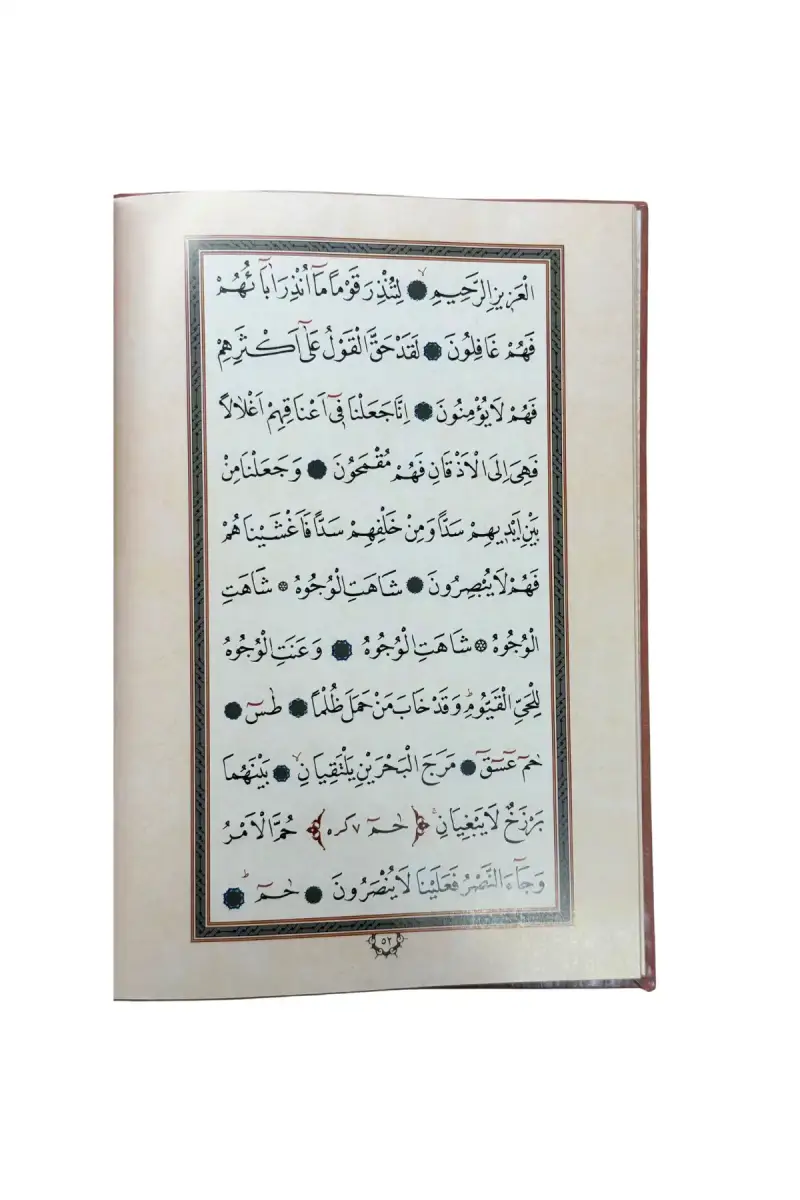 الْعَزِيزِ الرَّحِيمِۙ ۝ لِتُنْذِرَ قَوْمًا مَٓا اُنْذِرَ اٰبَٓاؤُ۬هُمْ
فَهُمْ غَافِلُونَ ۝ لَقَدْ حَقَّ الْقَوْلُ عَلٰٓى اَكْثَرِهِمْ
فَهُمْ لَا يُؤْمِنُونَ ۝ اِنَّا جَعَلْنَا فٖٓى اَعْنَاقِهِمْ اَغْلَالًا
فَهِىَ اِلَى الْاَذْقَانِ فَهُمْ مُقْمَحُونَ ۝ وَجَعَلْنَا مِنْ
بَيْنِ اَيْدٖيهِمْ سَدًّا وَمِنْ خَلْفِهِمْ سَدًّا فَاَغْشَيْنَاهُمْ
فَهُمْ لَا يُبْصِرُونَ ۝ شَاهَتِ الْوُجُوهُ ۞ شَاهَتِ
الْوُجُوهُ ۞ شَاهَتِ الْوُجُوهُ ۝ وَعَنَتِ الْوُجُوهُ
لِلْحَىِّ الْقَيُّومِؕ وَقَدْ خَابَ مَنْ حَمَلَ ظُلْمًا ۝ طٰسٓ ۝
حٰمٓ عٓسٓقٓ ۝ مَرَجَ الْبَحْرَيْنِ يَلْتَقِيَانِۙ ۝ بَيْنَهُمَا
بَرْزَخٌ لَا يَبْغِيَانِۚ ﴿ حٰمٓ ٧ كره ﴾ حُمَّ الْاَمْرُ
وَجَٓاءَ النَّصْرُ فَعَلَيْنَا لَا يُنْصَرُونَ ۝ حٰمٓؕ ۝
٥٢